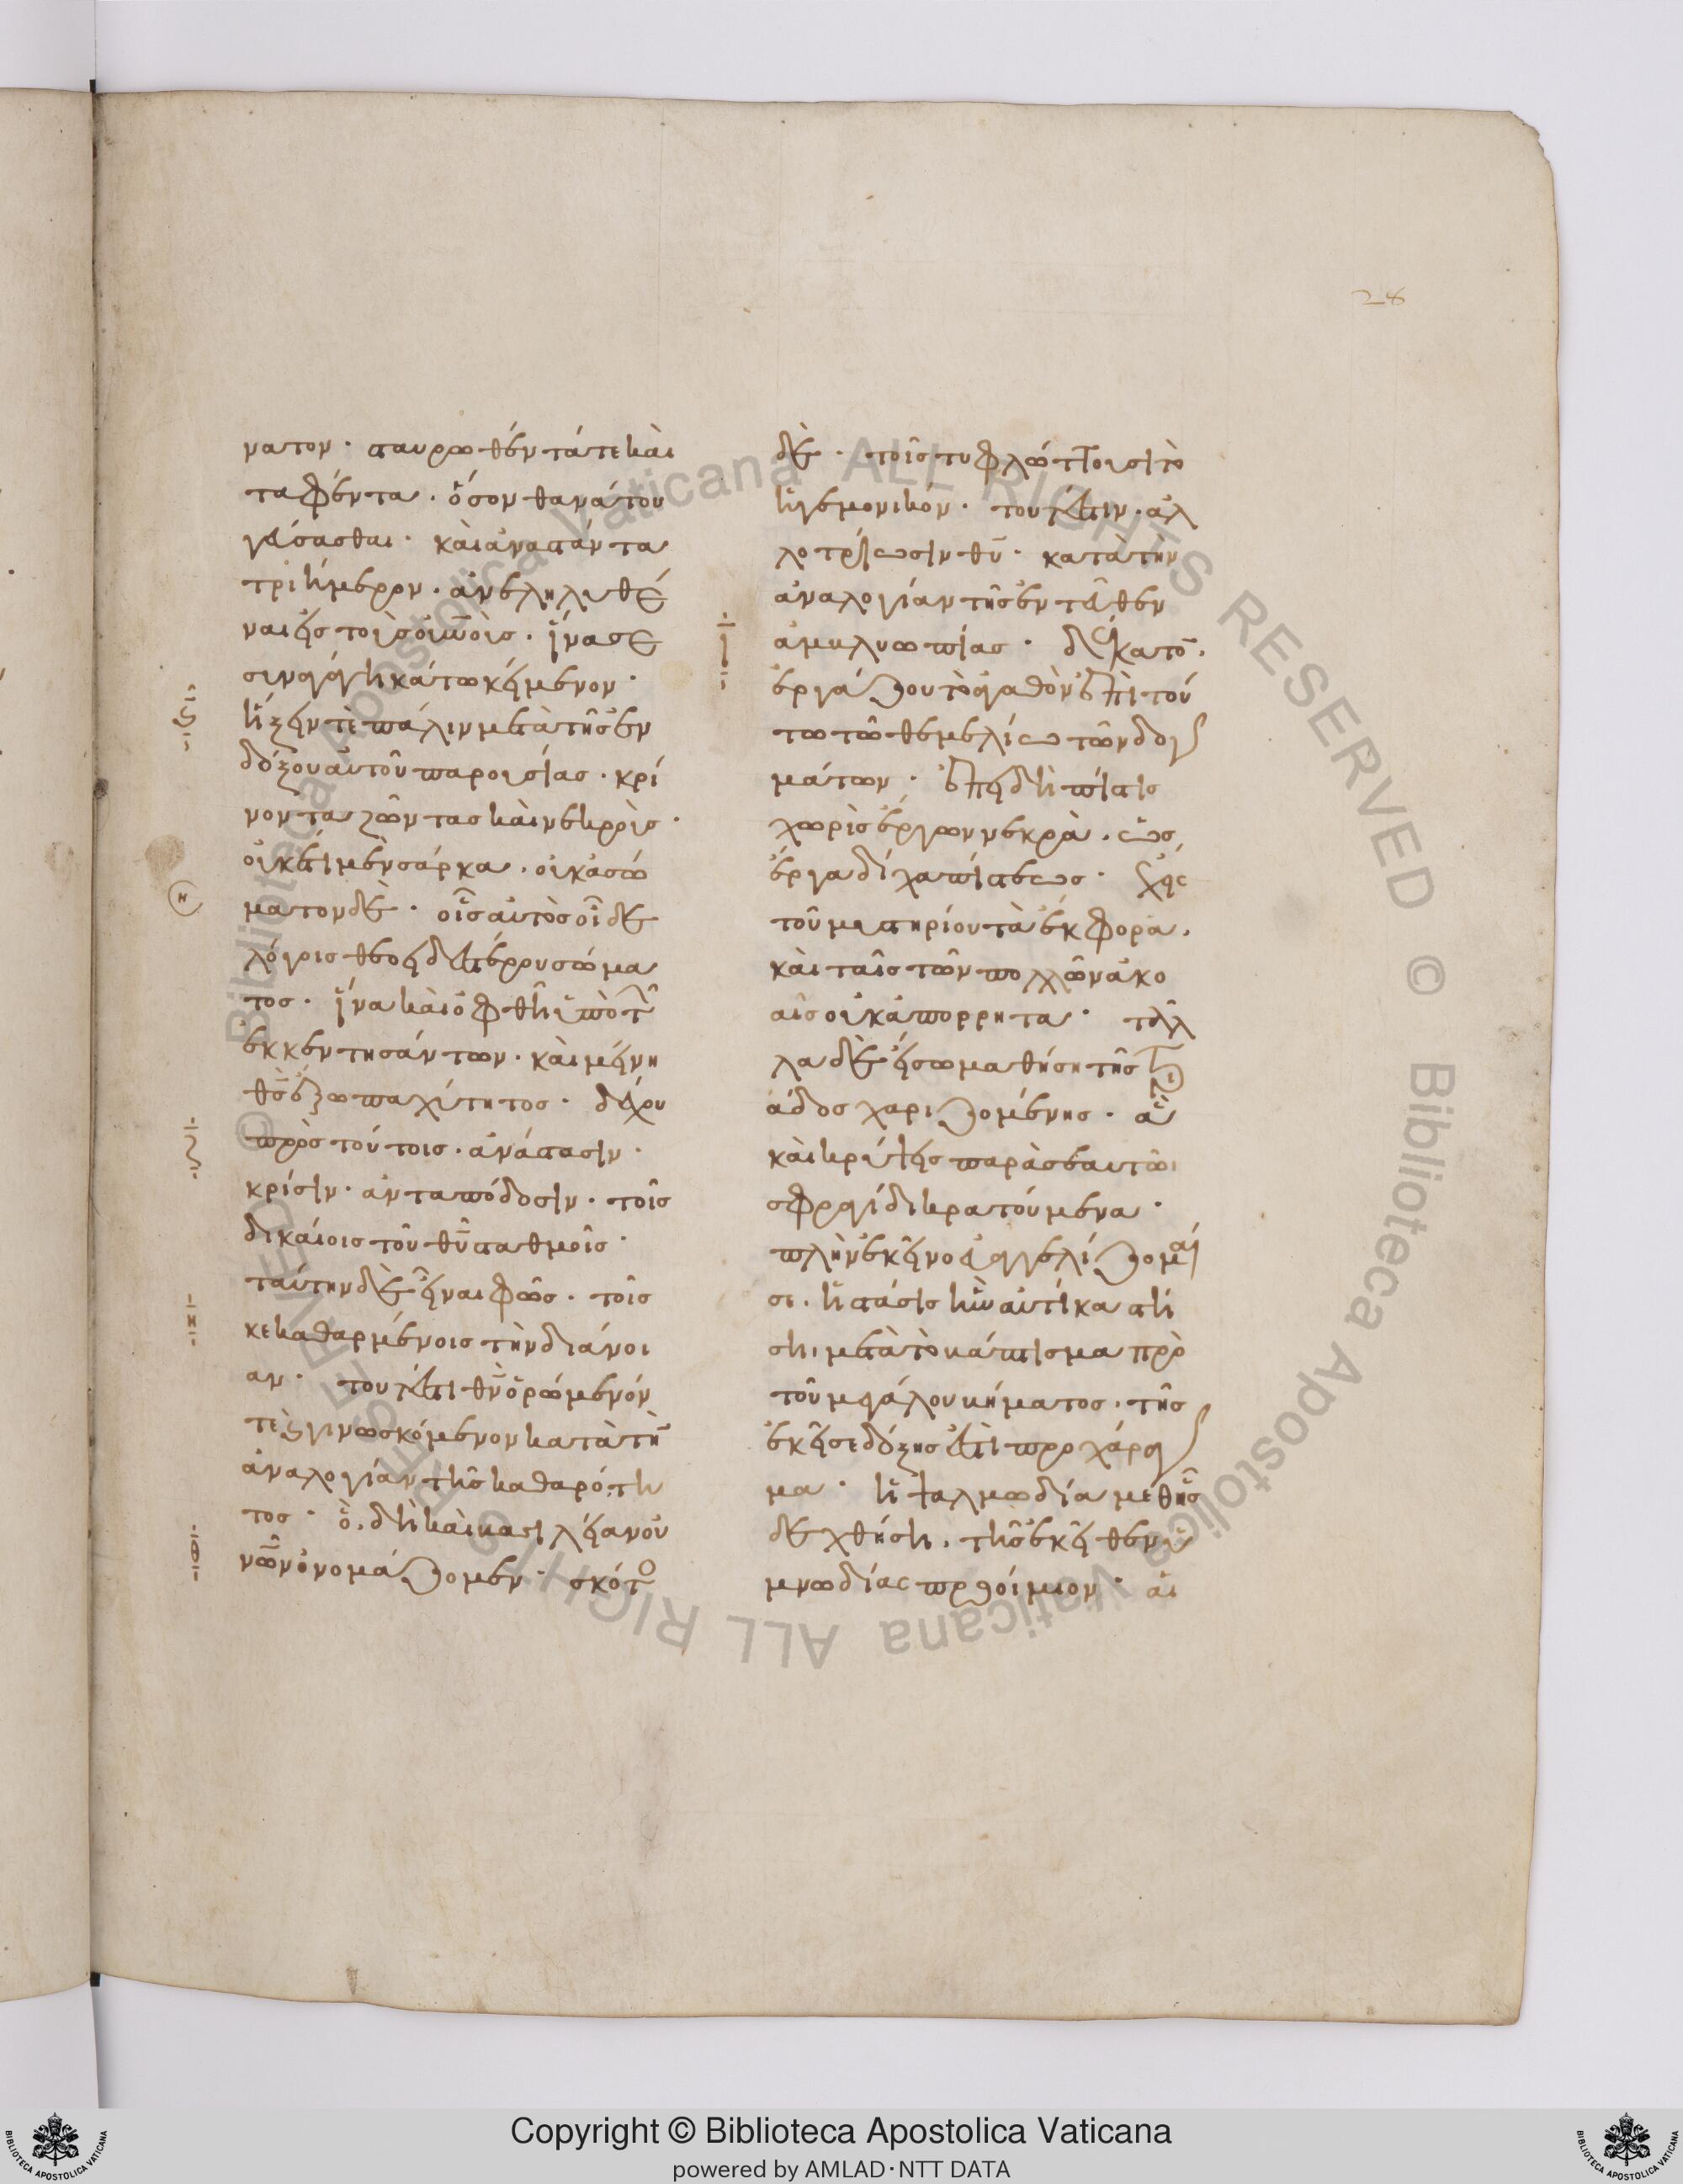 28
νατον · σταυρωθέντά τε καὶ
ταφέντα · ὅσον θανάτου
γεύσασθαι · καὶ ἀναστάντα
τριήμερον · ἀνεληλυθέ
ναι εἰς τοὺς οὐνοὺς · ἵνα σε
συναγάγη κάτω κείμενον ·
ἥξειν τὲ πάλιν μετὰ τῆς ἐν
δόξου αὐτοῦ παρουσίας · κρί
νοντα ζῶντας καὶ νεκροὺς ·
οὐκέτι μὲν σάρκα · οὐκ ἀσώ
ματον δὲ · οἷς αὐτὸς οἶδε
λόγοις θεοειδεστέρου σώμα
τος · ἵνα καὶ ὀφθῆ ὑπὸ τῶ
ἐκκεντησάντων · καὶ μείνη
θς ἔξω παχύτητος · δέχου
πρὸς τούτοις · ἀνάστασιν ·
κρίσιν · ἀνταπόδοσιν · τοῖς
δικαίοις τοῦ θυ σταθμοῖς ·
ταύτην δὲ εἶναι φῶς · τοῖς
κεκαθαρμένοις τὴν διάνοι
αν · τουτέστι θν ὁρώμενόν
τὲ ϗ γινωσκόμενον κατὰ τὴ
ἀναλογίαν τῆς καθαρότη
τος · ὃ δὴ καὶ βασιλείαν οὐ
νῶν ὀνομάζομεν · σκότο
δὲ · τοῖς τυφλώττουσι τὸ
ἡγεμονικόν · τουτέστιν · ἀλ
λοτρίωσιν θυ · κατὰ τὴν
ἀναλογίαν τῆς ἐντεῦθεν
ἀμβλυωπίας · δέκατο ·
ι
ἐργάζου τὸ ἀγαθὸν ἐπὶ τού
τω τῶ θεμελίω τῶν δογ
μάτων · ἐπειδὴ πίστις
χωρὶς ἔργων νεκρὰ · ὡς
ἔργα δίχα πίστεως · ἔχεις
τοῦ μυστηρίου τὰ ἔκφορα ·
καὶ ταῖς τῶν πολλῶν ἀκο
αῖς οὐκ ἀπόρρητα · τἆλ
λα δὲ εἴσω μαθήση τῆς τρι
άδος χαριζομένης · ἃ
καὶ κρύψεις παρὰ σεαυτῶι
σφραγίδι κρατούμενα ·
πλὴν ἐκεῖνο εὐαγγελίζομαί
σι · ἡ στάσις ἣν αὐτίκα στή
ση μετὰ τὸ βάπτισμα πρὸ
τοῦ μεγάλου βήματος · τῆς
ἐκεῖσε δόξης ἐστὶ προχάραγ
μα · ἡ ψαλμωδία μεθ' ἧς
δεχθήση · τῆς ἐκεῖθεν ὑ
μνωδίας προοίμιον · αἱ